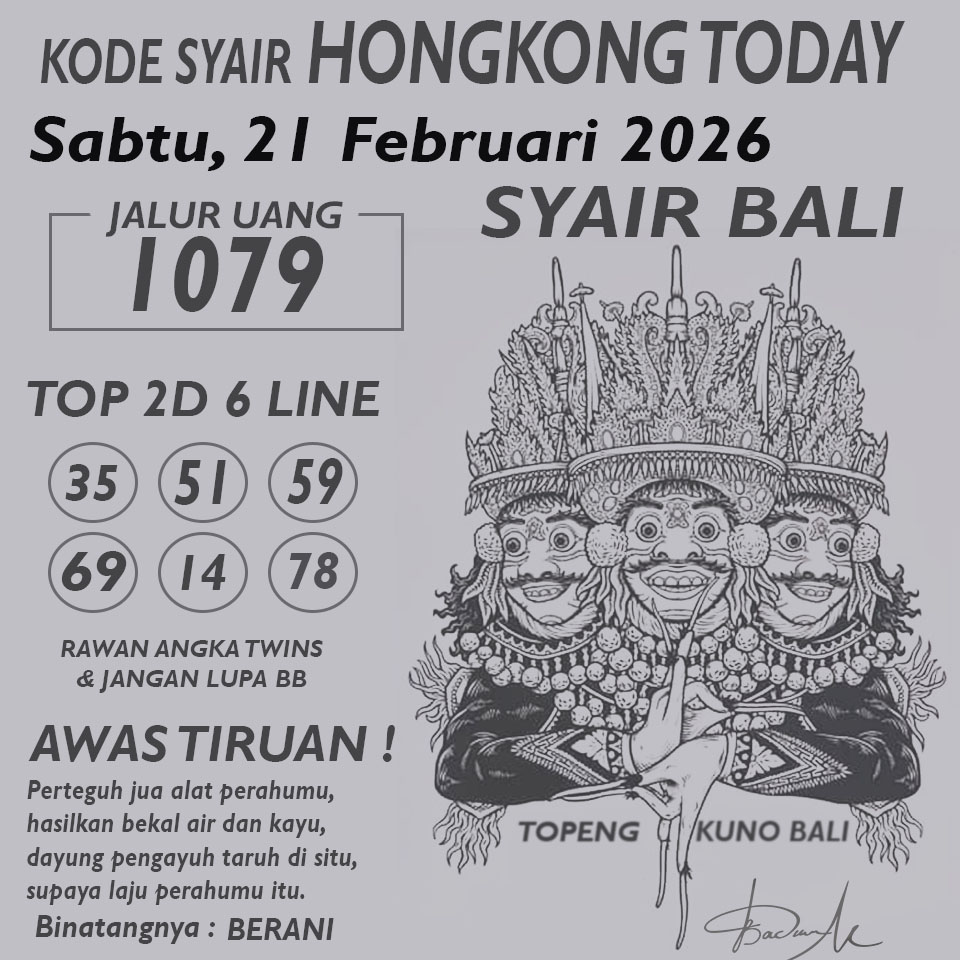 KODE SYAIR HONGKONG TODAY
Sabtu, 21 Februari 2026
SYAIR BALI
JALUR UANG
1079
TOP 2D 6 LINE
35 51 59
69 14 78
RAWAN ANGKA TWINS
& JANGAN LUPA BB
AWAS TIRUAN !
Perteguh jua alat perahumu,
hasilkan bekal air dan kayu,
dayung pengayuh taruh di situ,
supaya laju perahumu itu.
Binatangnya : BERANI
TOPENG KUNO BALI